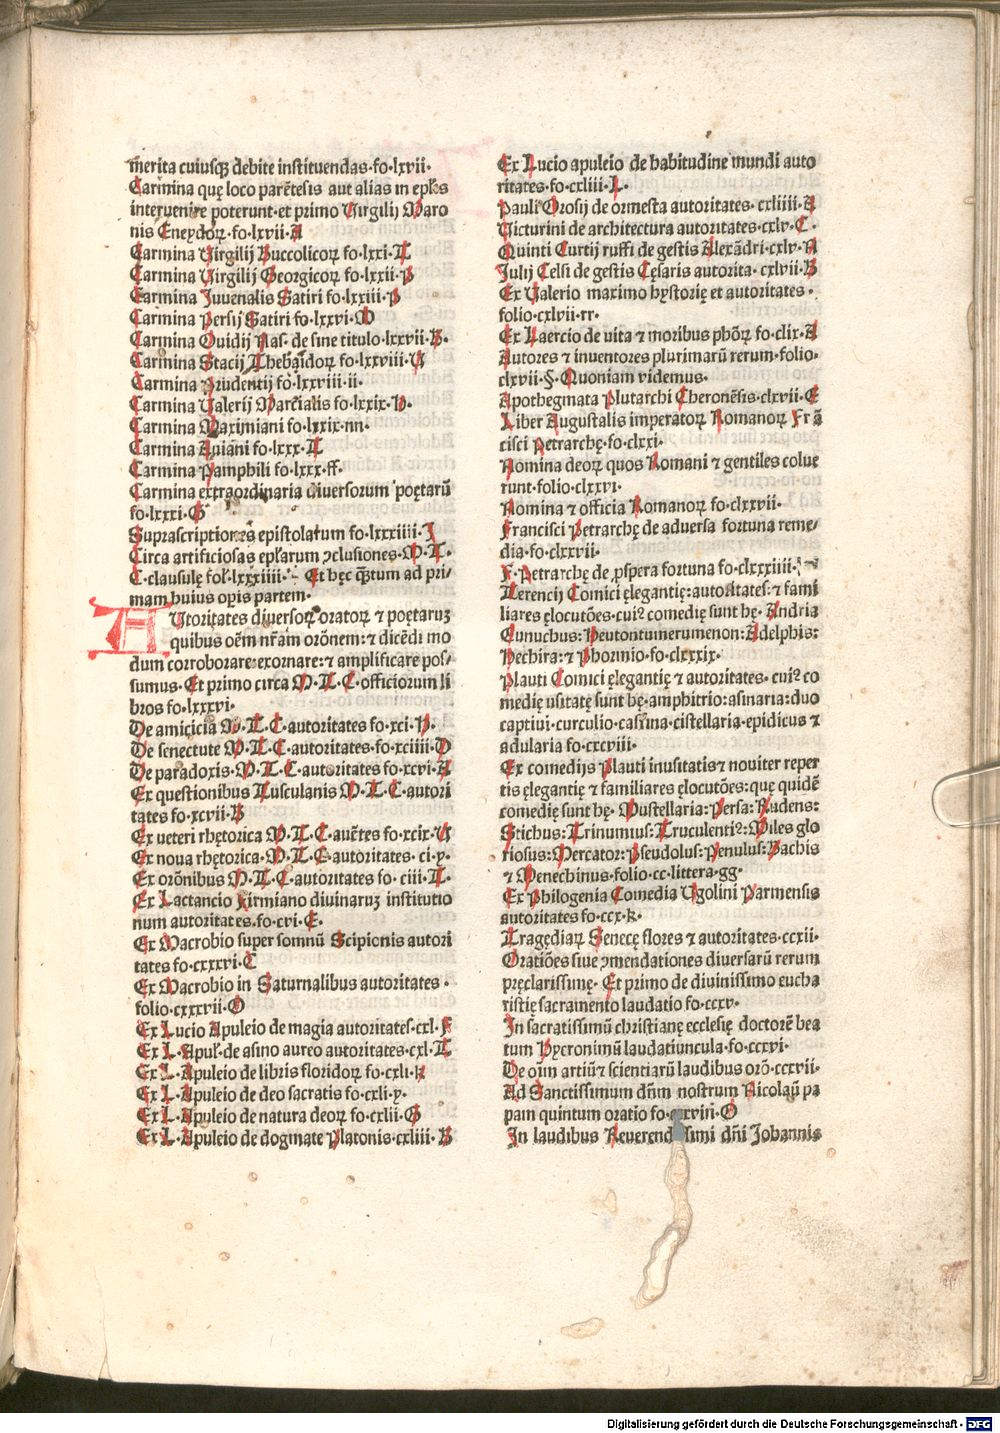 merita cuiusqꝫ debite instituendas·fo·lxvii·
Carmina quę loco parētesis aut alias in epl̄is
interuenire poterunt·et primo Virgilij Maro
nis Eneydoꝝ·fo·lxvii·A
Carmina Virgilij Buccolicoꝝ fo·lxxi·L
Carmina Virgilij Georgicoꝝ fo·lxxii·P
Carmina Juuenalis Satiri fo·lxxiii·P
Carmina Persij Satiri fo·lxxvi·M
Carmina Ouidij Nas· de sine titulo·lxxvii·B·
Carmina Stacij Thebaidoꝝ fo·lxxviii·V
Carmina Prudentij fo·lxxviii·ii·
Carmina Valerij Marcialis fo·lxxix·D·
Carmina Maximiani fo·lxxix·nn·
Carmina Auiani fo·lxxx·L
Carmina Pamphili fo·lxxx·ff·
Carmina extraordinaria diuersorum poętarū
fo·lxxxi·G
Suprascriptiones epistolarum fo·lxxxiiii·J
Circa artificiosas epl̄arum ꝯclusiones·M·T·
C·clausulę fol·lxxxiiii· Et hęc qꝫtum ad pri/
mam huius opis partem·
AUtoritates diuersoꝝ oratoꝝ ⁊ poętaruꝫ
quibus oēm nr̄am orōnem:⁊ dicēdi mo
dum corroborare:exornare:⁊ amplificare pos/
sumus· Et primo circa M·T·C·officiorum li
bros fo·lxxxvi·
De amicicia M·T·C·autoritates fo·xci·D·
De senectute M·T·C·autoritates·fo·xciiii·D
De paradoxis·M·T·C·autoritates fo·xcvi·A
Ex questionibus Tusculanis M·T·C·autori
tates fo·xcvii·B
Ex ueteri rhętorica M·T·C·auc̄tes fo·xcix·V
Ex noua rhętorica·M·T·C·autoritates· ci·y·
Ex orōnibus M·T·C·autoritates fo· ciii·T·
Ex Lactancio Firmiano diuinaruꝫ institutio
num autoritates·fo·cvi·E·
Ex Macrobio super somnū Scipionis autori
tates fo·cxxxvi·C
Ex Macrobio in Saturnalibus autoritates·
folio·cxxxvii·O
Ex Lucio Apuleio de magia autoritates·cxl·F
Ex L·Apul·de asino aureo autoritates·cxl·T
Ex L·Apuleio de libris floridoꝝ fo·cxli·k
Ex L·Apuleio de deo socratis fo·cxli·y·
Ex L·Apuleio de natura deoꝝ fo·cxlii·G
Ex L·Apuleio de dogmate Platonis·cxliii·B
Ex Lucio apuleio de habitudine mundi auto
ritates·fo·cxliii·L·
Pauli Orosij de ormesta autoritates·cxliiii·A
Victurini de architectura autoritates·cxlv·C·
Quinti Curtij ruffi de gestis Alexādri·cxlv·A
Julij Celsi de gestis Cęsaris autorita·cxlvii·B
Ex Valerio maximo hystorię et autoritates·
folio·cxlvii·rr·
Ex Laercio de vita ⁊ moribus phōꝝ fo·clix·A
Autores ⁊ inuentores plurimarū rerum·folio·
clxvii·§·Quoniam videmus·
Apothegmata Plutarchi Cheronēsis·clxvii·E
Liber Augustalis imperatoꝝ Romanoꝝ Frā
cisci Petrarchę·fo·clxxi·
Nomina deoꝝ quos Romani ⁊ gentiles colue
runt·folio·clxxvi·
Nomina ⁊ officia Romanoꝝ fo·clxxvii·
Francisci Petrarchę de aduersa fortuna reme/
dia·fo·clxxvii·
F·Petrarchę de ꝓspera fortuna fo·clxxxiiii·
Terencij Comici ęlegantię:autoritates:⁊ fami
liares ęlocutōes·cuiꝰ comedię sunt hę· Andria
Eunuchus:Heutontumerumenon:Adelphis:
Hechira:⁊ Phormio·fo·clxxxix·
Plauti Comici ęlegantię ⁊ autoritates·cuiꝰ co
medię usitatę sunt hę·amphitrio:asinaria:duo
captiui·curculio·casina·cistellaria·epidicus ⁊
adularia fo·cxcviii·
Ex comedijs Plauti inusitatis⁊ nouiter reper
tis ęlegantię ⁊ familiares ęlocutōes:quę quidē
comedię sunt hę·Mustellaria:Persa:Rudens:
Stichus:Trinumius:Truculentiꝰ:Miles glo
riosus:Mercator:Pseudolus:Penulus:Bachis
⁊ Menechinus·folio·cc·littera·gg·
Ex Philogenia Comedia Vgolini Parmensis
autoritates fo·ccx·k·
Tragędiaꝝ Senecę flores ⁊ autoritates·ccxii·
Oratiōes siue ꝯmendationes diuersarū rerum
pręclarissimę· Et primo de diuinissimo eucha
ristię sacramento laudatio fo·ccxv·
In sacratissimū christianę ecclesię doctorē bea
tum Hycronimū laudatiuncula·fo·ccxvi·
De oīm artiū⁊ scientiarū laudibus orō·ccxvii·
Ad Sanctissimum dn̄m nostrum Nicolaū pa
pam quintum oratio fo·ccxviii·O
In laudibus Reuerendissimi dn̄i Johannis
Digitalisierung gefördert durch die Deutsche Forschungsgemeinschaft - DFG